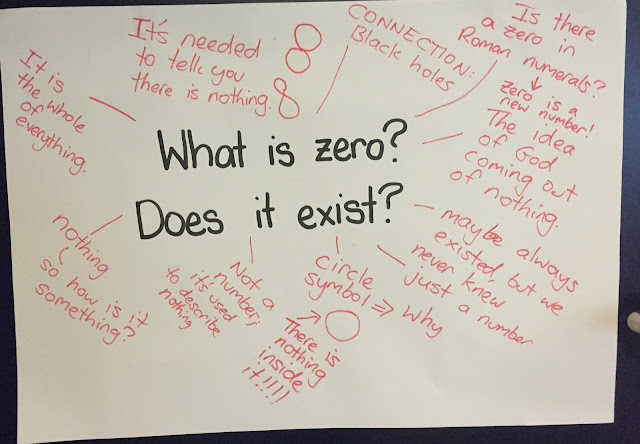 What is zero?
Does it exist?
It's needed
to tell you
there is nothing.
CONNECTION:
Black holes
Is there
a zero in
Roman numerals?
zero is a
new number!
The idea
of God
coming out
of nothing.
maybe always
existed, but we
never knew
just a number
circle
symbol ⇒ why
There is
nothing
inside
it!!!!!
Not a
number;
it's used
to describe
nothing
nothing
so how is it
something?
It is
the whole
of everything.